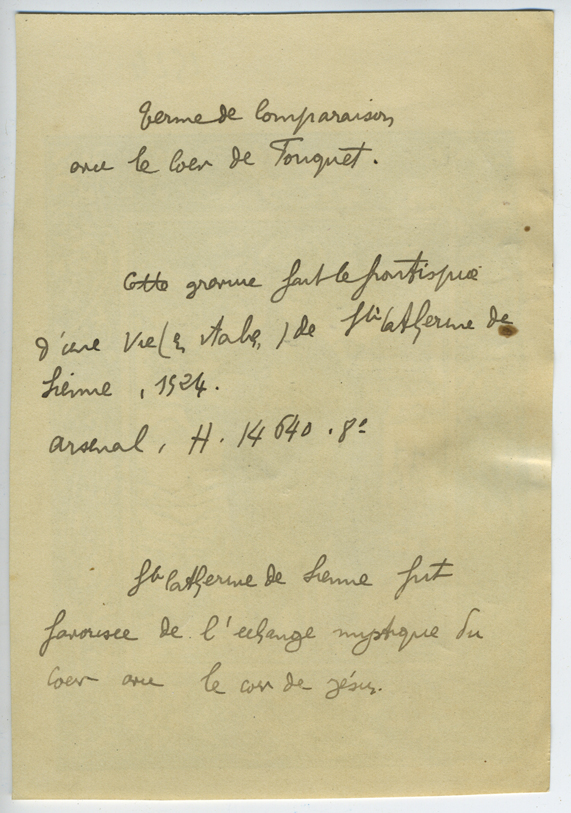 Terme de Comparaison
avec le Coeur de Touquet.
Cette gravure fait le frontispice
d'une Vie (en italien) de Ste Catherine de
Sienne, 1524.
Arsenal, H. 14640. 8º
Ste Catherine de Sienne fut
favorisée de l'échange mystique du
Coeur avec le coeur de Jésus.